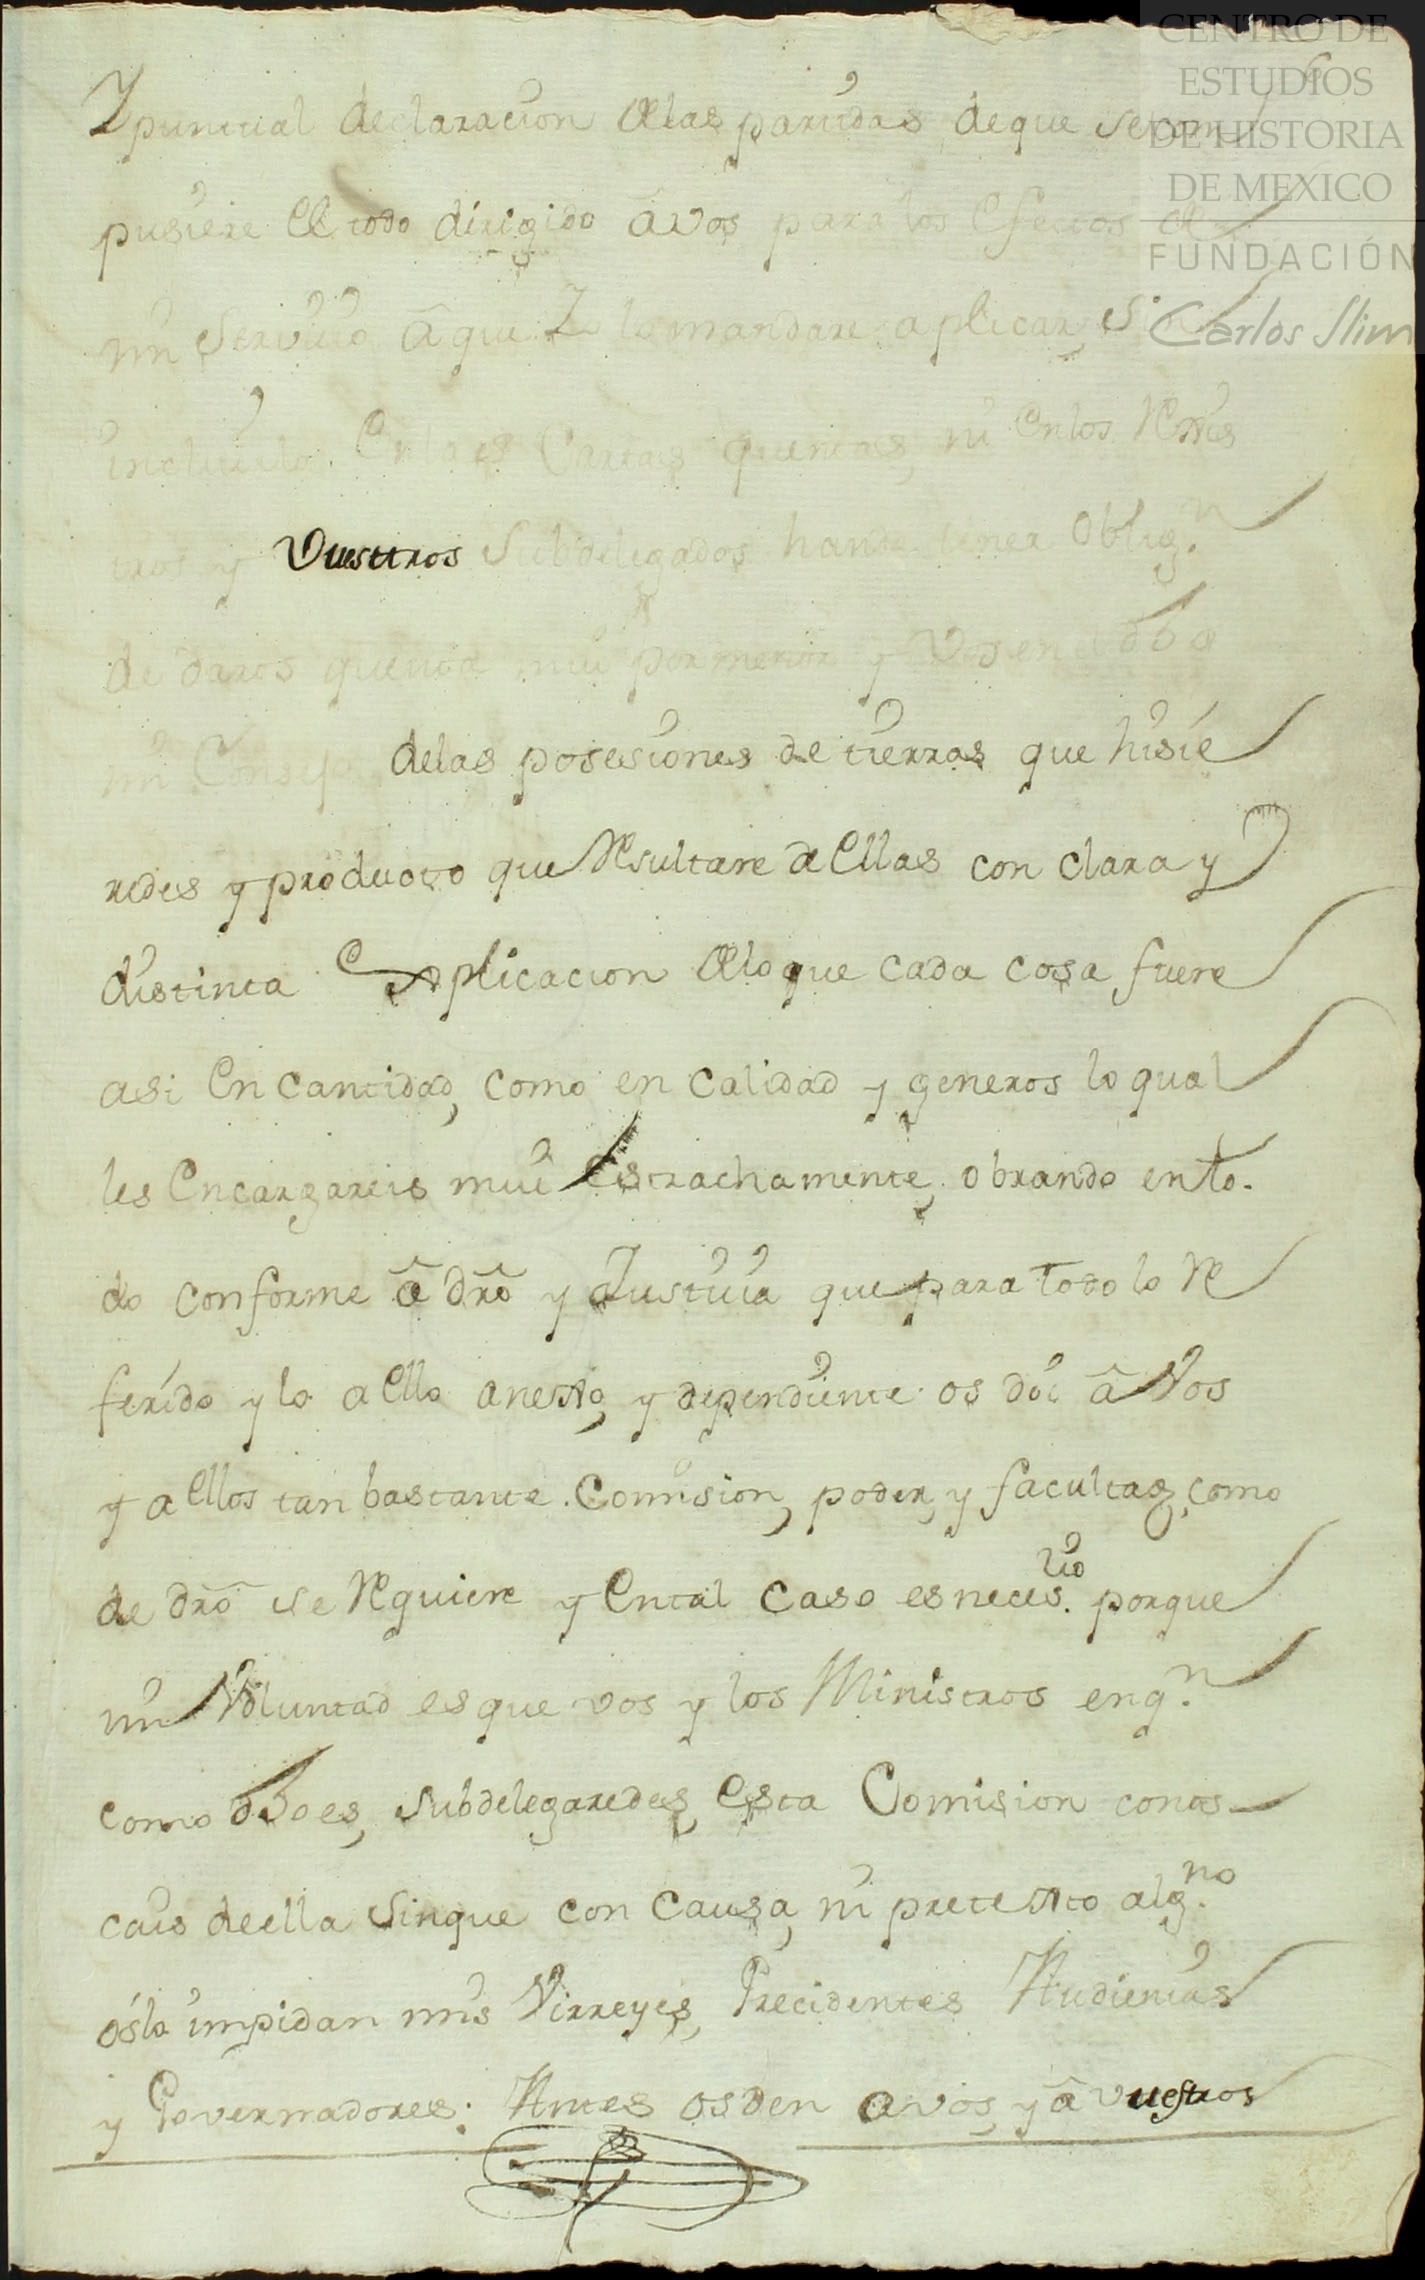 CENTRO DE
ESTUDIOS
DE HISTORIA
DE MEXICO
FUNDACIÓN
Carlos Slim
Y puntual declaracion delas partidas, deque secom
pusiere el todo dirigido â vos para los efectos de
mi servicio â que Y lo mandare aplicar, sin
incluirlo en las Cartas quentas, ni en los
tros y Vuestros Subdelegados han de tener Oblig.n
de daros quenta mui pormenor y Vos en el
mi Consejo delas posesiones de tierras que hisie
redes y producto que Resultare de ellas con clara y
distinta Explicacion delo que cada cosa fuere
asi en cantidad, como en calidad y generos lo qual
les encargareis mui estrachamente, obrando ento-
do conforme â dr̃o y Justicia que para todo lo Re
ferido y lo a ello anexo, y dependiente os dói â Vos
y a ellos tan bastante Comision, poder, y facultad, como
de dr̃o se Requiere y en tal caso es neces.rio porque
mi Voluntad es que vos y los Ministros enq.n
como dho es, subdelegaredes, esta Comision conos-
cais deella sinque con causa, ni pretexto alg.no
ôsla impidan mis Virreyes, Precidentes Audiencias
y Governadores; Antes os den a vos, y â vuestros